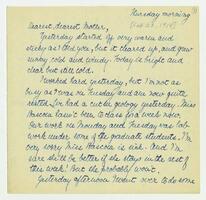 Thursday morning
Dearest, dearest Mother,
Yesterday started off very warm and
sticky as I told you, but it cleared up, and grew
sunny cold and windy. Today is bright and
clear but still cold.
I worked hard yesterday, but I'm not as
busy as I was on Tuesday and am now quite
rested. I've had a cut in geology yesterday. Miss
hasn't been to class for a week now.
Our work on Monday and Tuesday was lab
work under some of the graduate students. I'm
very sorry Miss is sick. And I'm
sure she'll be better if she stays in the rest of
this week! But she probably won't.
Yesterday afternoon I went over to do some